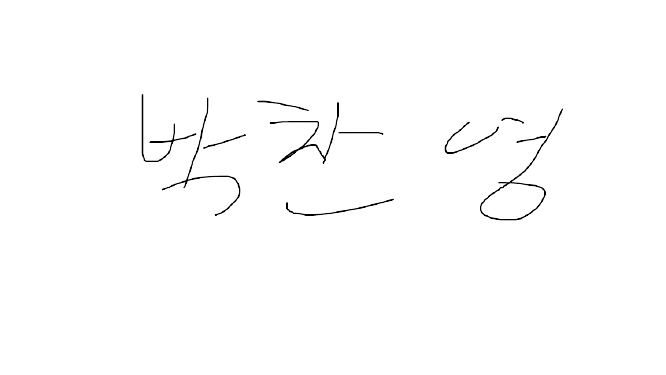 박찬영